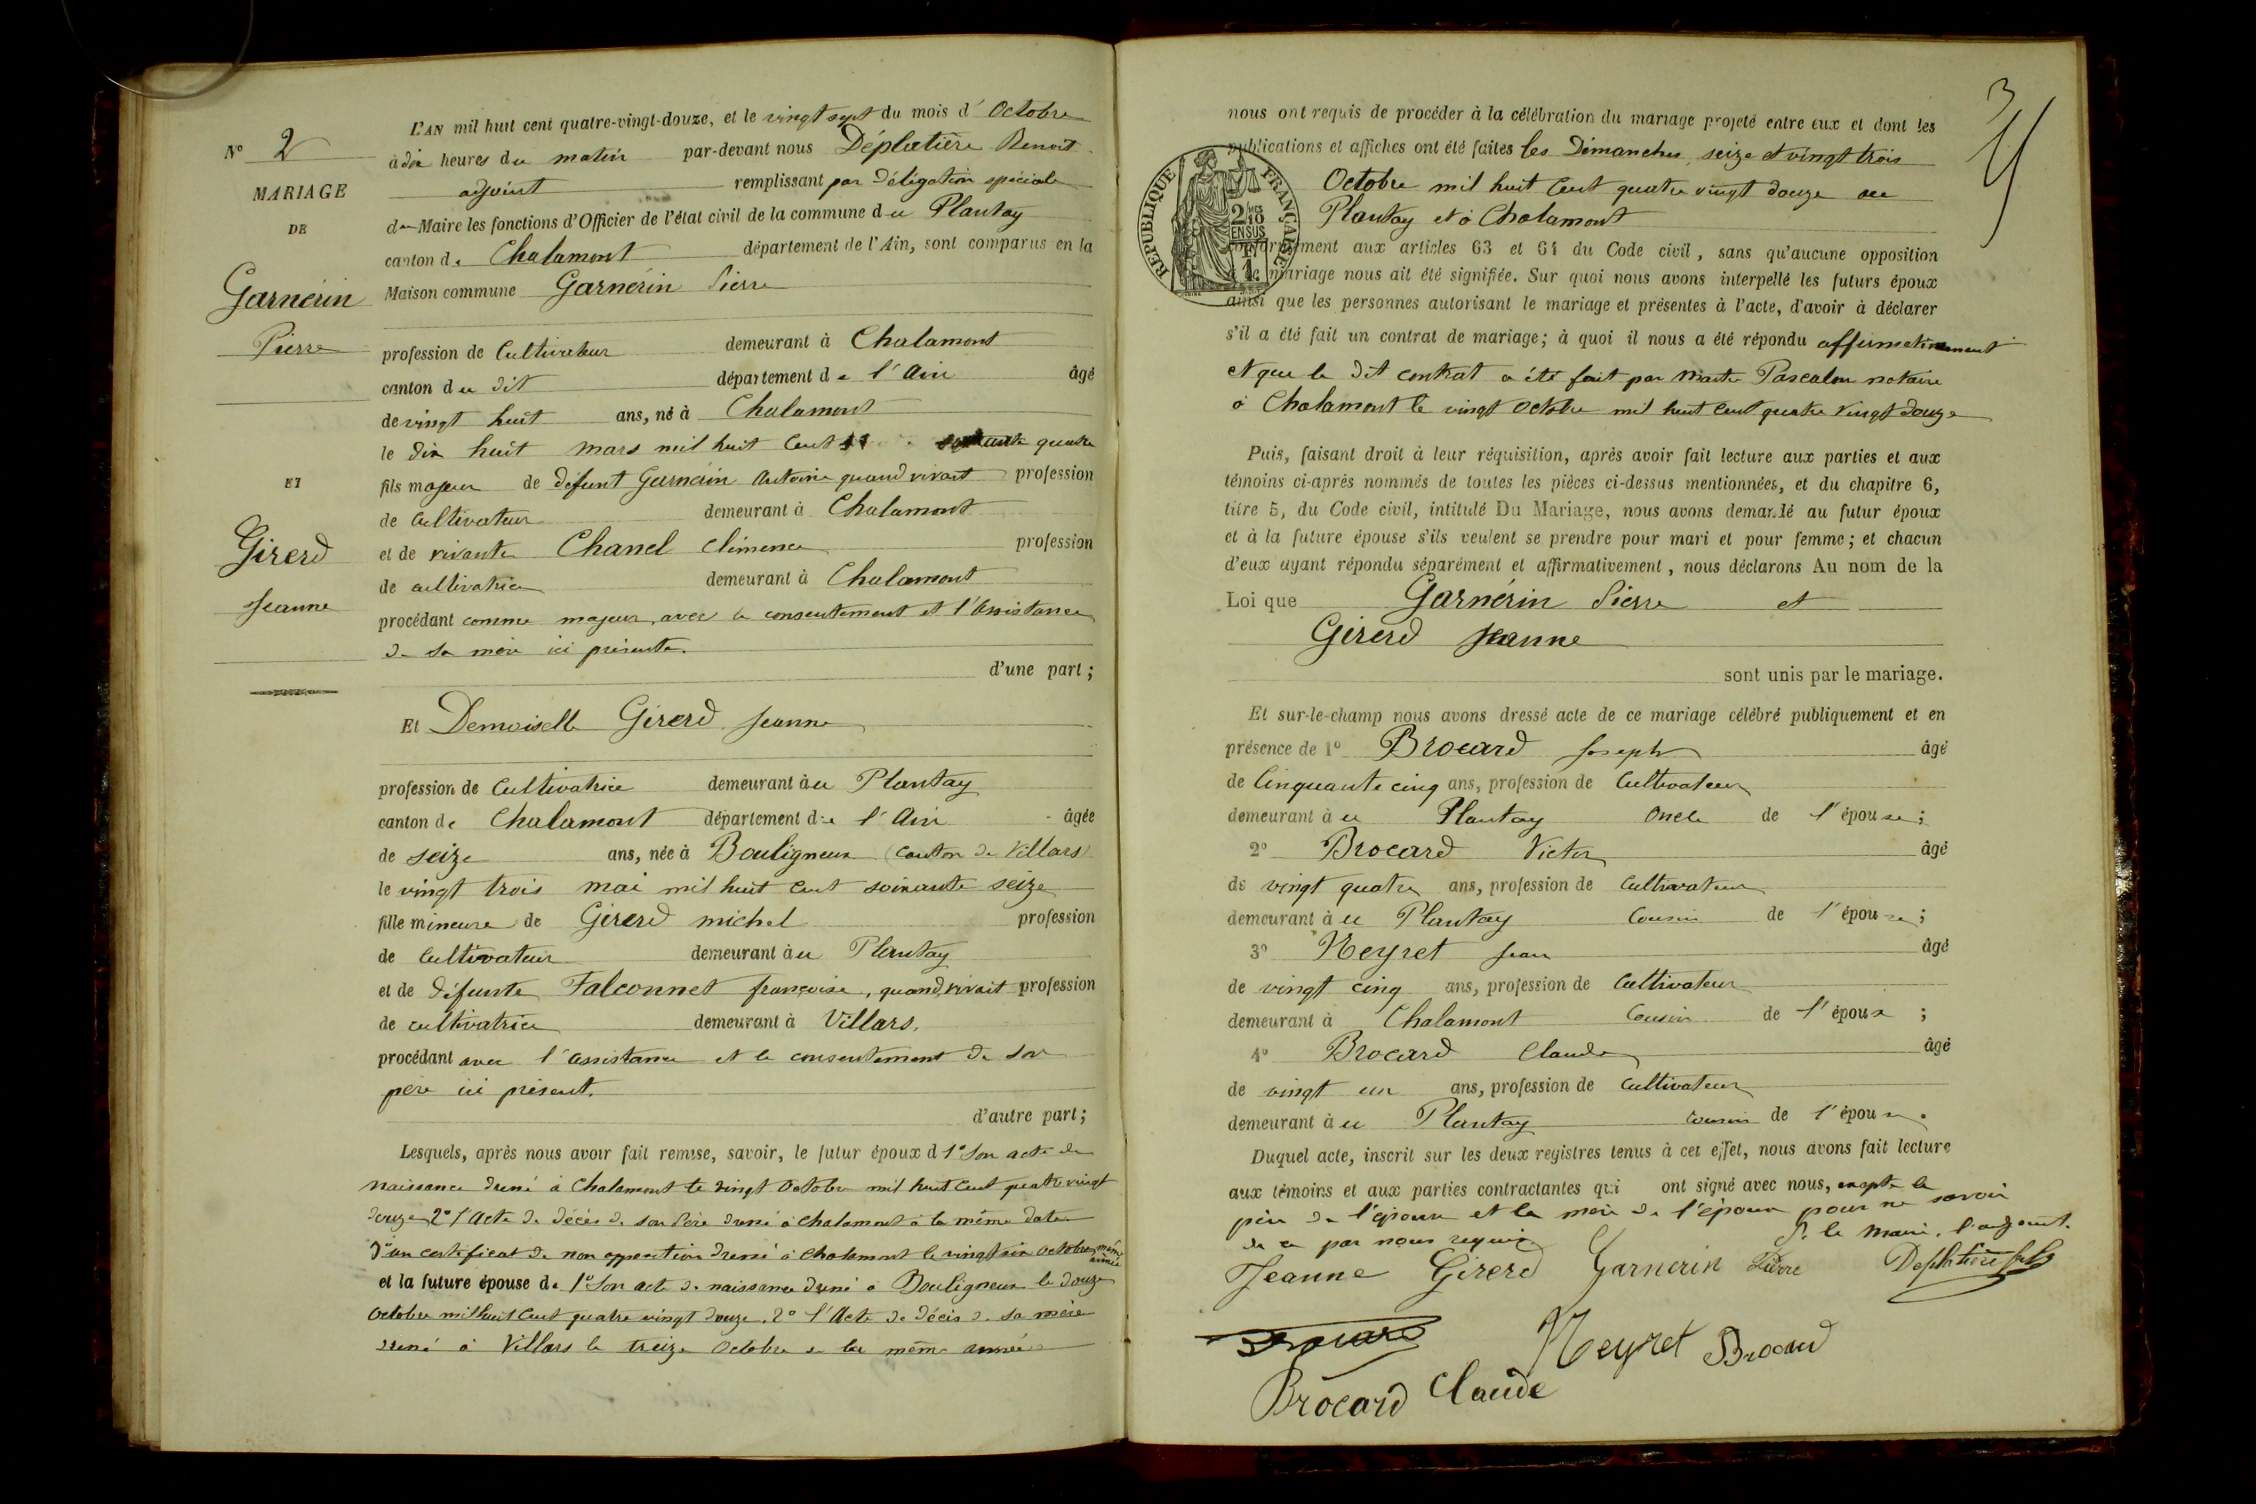 N° 2
MARIAGE
DE
Garnerin
Pierre
ET
Girerd
Jeanne
L'AN mil huit cent quatre-vingt-douze, et le vingt sept du mois d'Octobre
à dix heures du matin par-devant nous Déplatière Benoit
adjoint remplissant par délégation spéciale
du Maire les fonctions d'Officier de l'état civil de la commune du Plantay
canton de Chalamont département de l'Ain, sont comparus en la
Maison commune Garnérin Pierre
profession de Cultivateur demeurant à Chalamont
canton du dit département de l'Ain âgé
de vingt huit ans, né à Chalamont
le dix huit mars mil huit Cent soixante quatre
fils majeur de défunt Garnérin Antoine quand vivait profession
de Cultivateur demeurant à Chalamont
et de vivante Chanel Clémence profession
de cultivatrice demeurant à Chalamont
procédant comme majeur, avec le consentement et l'Assistance
de sa mère ici présente.
d'une part;
Et Demoiselle Girerd Jeanne
profession de Cultivatrice demeurant à u Plantay
canton de Chalamont département de l'Ain âgée
de seize ans, née à Bouligneux (canton de Villars)
le vingt trois mai mil huit cent soixante seize
fille mineure de Girerd michel profession
de Cultivateur demeurant à u Plantay
et de défunte Falconnet françoise, quand vivait profession
de cultivatrice demeurant à Villars.
procédant avec l'assistance et le consentement de son
père ici présent.
d'autre part;
Lesquels, après nous avoir fait remise, savoir, le futur époux d 1° Son acte de
naissance dressé à Chalamont le vingt Octobre mil huit Cent quatre vingt
douze 2° l'Acte de décès de son Père dressé à Chalamont à la même date
3° un certificat de non opposition dressé à Chalamont le vingt six Octobre même année
et la future épouse de 1° Son acte de naissance dressé à Bouligneux le douze
Octobre mil huit Cent quatre vingt douze. 2° l'Acte de décès de sa mère
dressé à Villars le treize Octobre de la même année
3
nous ont requis de procéder à la célébration du mariage projeté entre eux et dont les
publications et affiches ont été faites les Dimanches seize et vingt trois
Octobre mil huit Cent quatre vingt douze au
Plantay et à Chalamont
RÉPUBLIQUE FRANÇAISE
2/10 EN SUS
conformément aux articles 63 et 64 du Code civil, sans qu'aucune opposition
mariage nous ait été signifiée. Sur quoi nous avons interpellé les futurs époux
ainsi que les personnes autorisant le mariage et présentes à l'acte, d'avoir à déclarer
s'il a été fait un contrat de mariage; à quoi il nous a été répondu affirmativement
et que le dit contrat a été fait par Maître Pascalon notaire
à Chalamont le vingt Octobre mil huit Cent quatre vingt douze
Puis, faisant droit à leur réquisition, après avoir fait lecture aux parties et aux
témoins ci-après nommés de toutes les pièces ci-dessus mentionnées, et du chapitre 6,
titre 5, du Code civil, intitulé Du Mariage, nous avons demandé au futur époux
et à la future épouse s'ils veulent se prendre pour mari et pour femme; et chacun
d'eux ayant répondu séparément et affirmativement, nous déclarons Au nom de la
Loi que Garnérin Pierre et
Girerd Jeanne
sont unis par le mariage.
Et sur-le-champ nous avons dressé acte de ce mariage célébré publiquement et en
présence de 1° Brocard Joseph âgé
de Cinquante cinq ans, profession de Cultivateur
demeurant à u Plantay Oncle de l'épouse;
2° Brocard Victor âgé
de vingt quatre ans, profession de Cultivateur
demeurant à u Plantay Cousin de l'épouse;
3° Neyret Jean âgé
de vingt cinq ans, profession de Cultivateur
demeurant à Chalamont Cousin de l'époux;
4° Brocard Claude âgé
de vingt un ans, profession de Cultivateur
demeurant à u Plantay Cousin de l'épouse.
Duquel acte, inscrit sur les deux registres tenus à cet effet, nous avons fait lecture
aux témoins et aux parties contractantes qui ont signé avec nous, excepté le
père de l'épouse et la mère de l'époux pour ne savoir
de ce par nous requis P. le Maire, l'adjoint.
Jeanne Girerd Garnerin Pierre Déplatière
Brocard
Neyret Brocard
Brocard Claude